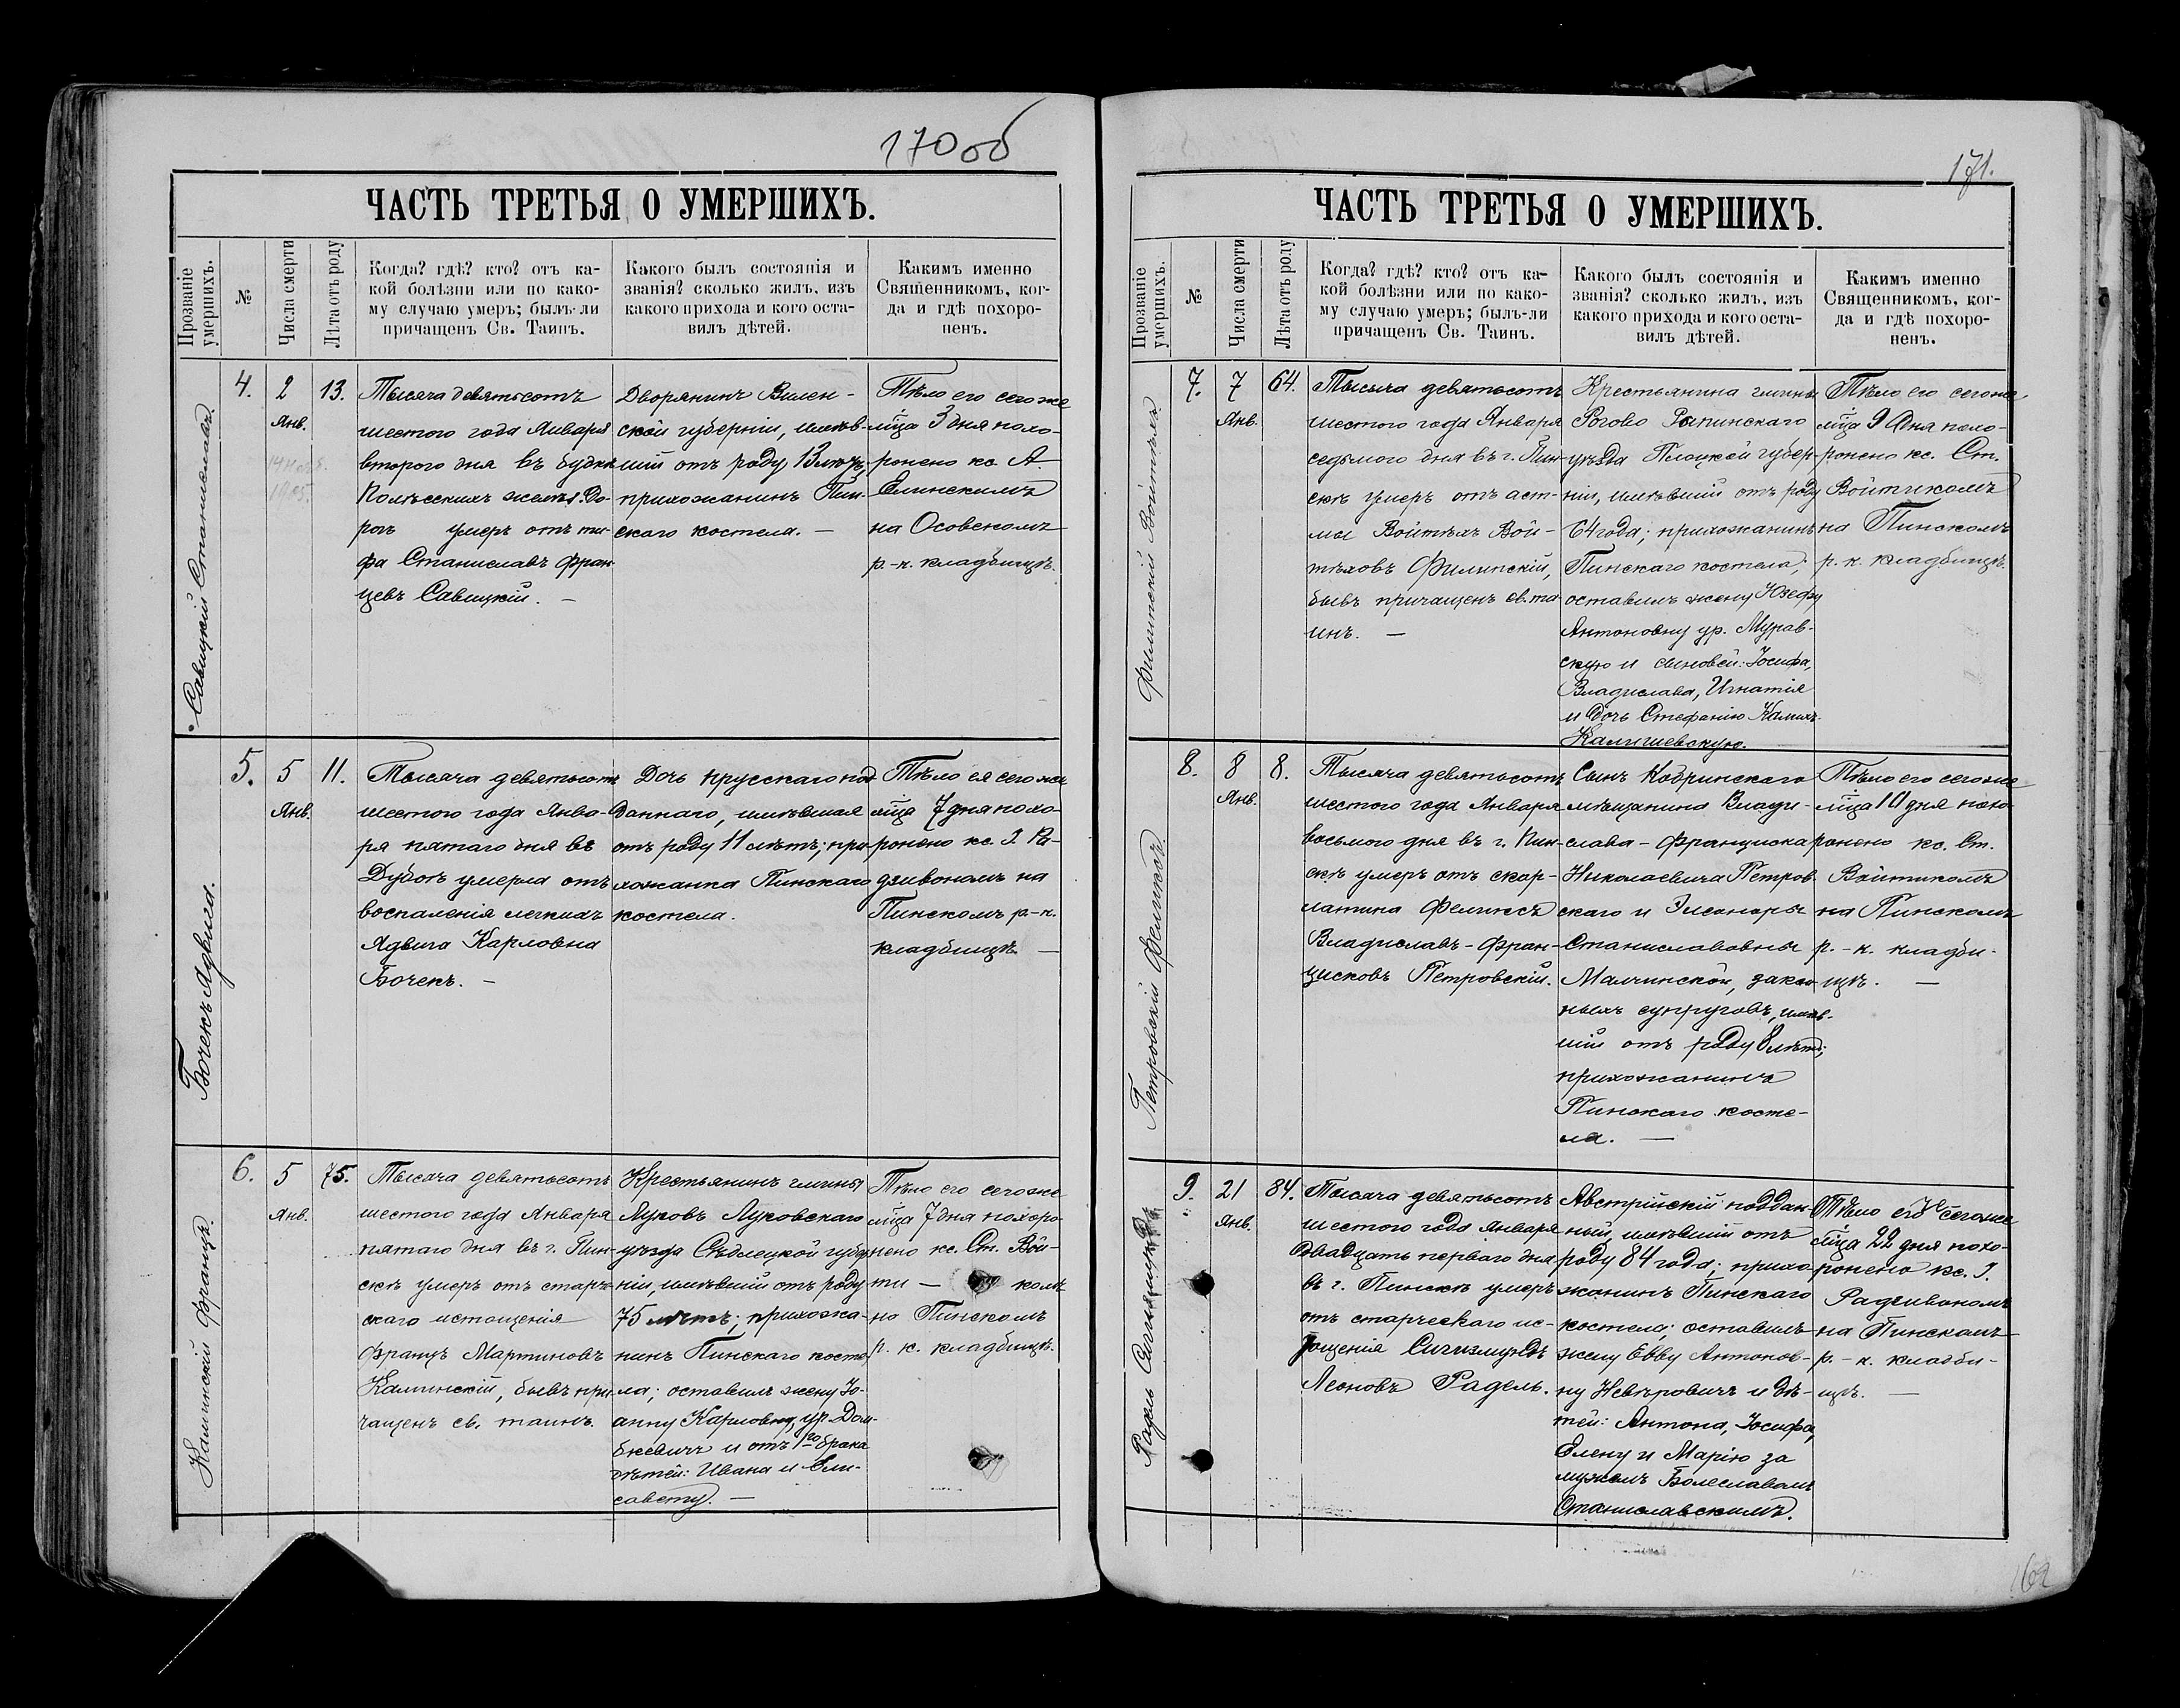 170 об
ЧАСТЬ ТРЕТЬЯ О УМЕРШИХЪ.
Прозваніе умершихъ.
№
Числа смерти
Лѣта отъ роду
Когда? гдѣ? кто? отъ ка-
кой болѣзни или по како-
му случаю умеръ; былъ-ли
причащенъ Св. Таинъ.
Какого былъ состоянія и
званія? сколько жилъ, изъ
какого прихода и кого оста-
вилъ дѣтей.
Какимъ именно
Священникомъ, ког-
да и гдѣ похоро-
ненъ.
Савицкій Станиславъ.
4.
2
Янв.
13.
Тысяча девятьсотъ
шестого года Января
второго дня въ будкѣ
Полѣсскихъ желѣз. до-
рогъ умеръ отъ ти-
фа Станиславъ Фран-
цевъ Савицкій. —
Дворянинъ Вилен-
ской губерніи, имѣв-
шій отъ роду 13 лѣтъ;
прихожанинъ Пин-
скаго костела. —
Тѣло его сего же
мѣца 3 дня похо-
ронено кс. А.
Елинскимъ
на Осовскомъ
р-к. кладбищѣ.
Бочекъ Ядвига.
5.
5
Янв.
11.
Тысяча девятьсотъ
шестого года Янва-
ря пятаго дня въ
Дубоѣ умерла отъ
воспаленія легкихъ
Ядвига Карловна
Бочекъ. —
Дочь прусскаго под-
даннаго, имѣвшая
отъ роду 11 лѣтъ; при-
хожанка Пинскаго
костела.
Тѣло ея сего же
мѣца 7 дня похо-
ронено кс. І. Ра-
дзивономъ на
Пинскомъ р-к.
кладбищѣ. —
Калинскій Францъ.
6.
5
Янв.
75.
Тысяча девятьсотъ
шестого года Января
пятаго дня въ г. Пин-
скѣ умеръ отъ старче-
скаго истощенія
Францъ Мартиновъ
Калинскій, бывъ при-
чащенъ св. таинъ.
Крестьянинъ гмины
Луковъ Луковскаго
уѣзда Сѣдлецкой губер-
ніи, имѣвшій отъ роду
75 лѣтъ; прихожа-
нинъ Пинскаго косте-
ла; оставилъ жену Іо-
анну Карловну, ур. Дом-
бкевичъ и отъ 1го брака
дѣтей: Ивана и Ели-
савету. —
Тѣло его сего же
мѣца 7 дня похоро-
нено кс. Ст. Вой-
ти — комъ
на Пинскомъ
р. к. кладбищѣ.
171.
ЧАСТЬ ТРЕТЬЯ О УМЕРШИХЪ.
Прозваніе умершихъ.
№
Числа смерти
Лѣта отъ роду
Когда? гдѣ? кто? отъ ка-
кой болѣзни или по како-
му случаю умеръ; былъ-ли
причащенъ Св. Таинъ.
Какого былъ состоянія и
званія? сколько жилъ, изъ
какого прихода и кого оста-
вилъ дѣтей.
Какимъ именно
Священникомъ, ког-
да и гдѣ похоро-
ненъ.
Филипскій Войтѣхъ
7.
7
Янв.
64.
Тысяча девятьсотъ
шестого года Января
седьмого дня въ г. Пин-
скѣ умеръ отъ аст-
мы Войтѣхъ Вой-
тѣховъ Филипскій,
бывъ причащенъ св. та-
инъ. —
Крестьянина гмины
Рогово Рыпинскаго
уѣзда Плоцкой губер-
ніи, имѣвшій отъ роду
64 года; прихожанинъ
Пинскаго костела;
оставилъ жену Юзефу
Антоновну ур. Мурав-
скую и сыновей: Іосифа,
Владислава, Игнатія
и дочь Стефанію
Калишевскую.
Тѣло его сего же
мѣца 9 дня похо-
ронено кс. Ст.
Войтикомъ
на Пинскомъ
р. к. кладбищѣ.
Петровскій Феликсъ.
8.
8
Янв.
8.
Тысяча девятьсотъ
шестого года Января
восьмого дня въ г. Пин-
скѣ умеръ отъ скар-
латина Феликсъ
Владиславъ-Фран-
цисковъ Петровскій.
Сынъ Кобринскаго
мѣщанина Влади-
слава-Франциска
Николаевича Петров-
скаго и Элеоноры
Станиславовны
Малчинской, закон-
ныхъ супруговъ, имѣв-
шій отъ роду 8 лѣтъ;
прихожанинъ
Пинскаго косте-
ла. —
Тѣло его сего же
мѣца 10 дня похо-
ронено кс. Ст.
Войтикомъ
на Пинскомъ
р.-к. кладби-
щѣ. —
Радель Сигизмундъ
9.
21
Янв.
84.
Тысяча девятьсотъ
шестого года Января
двадцать перваго дня
въ г. Пинскѣ умеръ
отъ старческаго ис-
тощенія Сигизмундъ
Леоновъ Радель.
Австрійскій поддан-
ный, имѣвшій отъ
роду 84 года; прихо-
жанинъ Пинскаго
костела; оставилъ
жену Евву Антонов-
ну Невѣровичъ и дѣ-
тей: Антона, Іосифа,
Елену и Марію за
мужемъ Болеславомъ
Станиславскимъ.
Тѣло его сего же
мѣца 22 дня похо-
ронено кс. І.
Радзивономъ
на Пинскомъ
р.-к. кладби-
щѣ. —